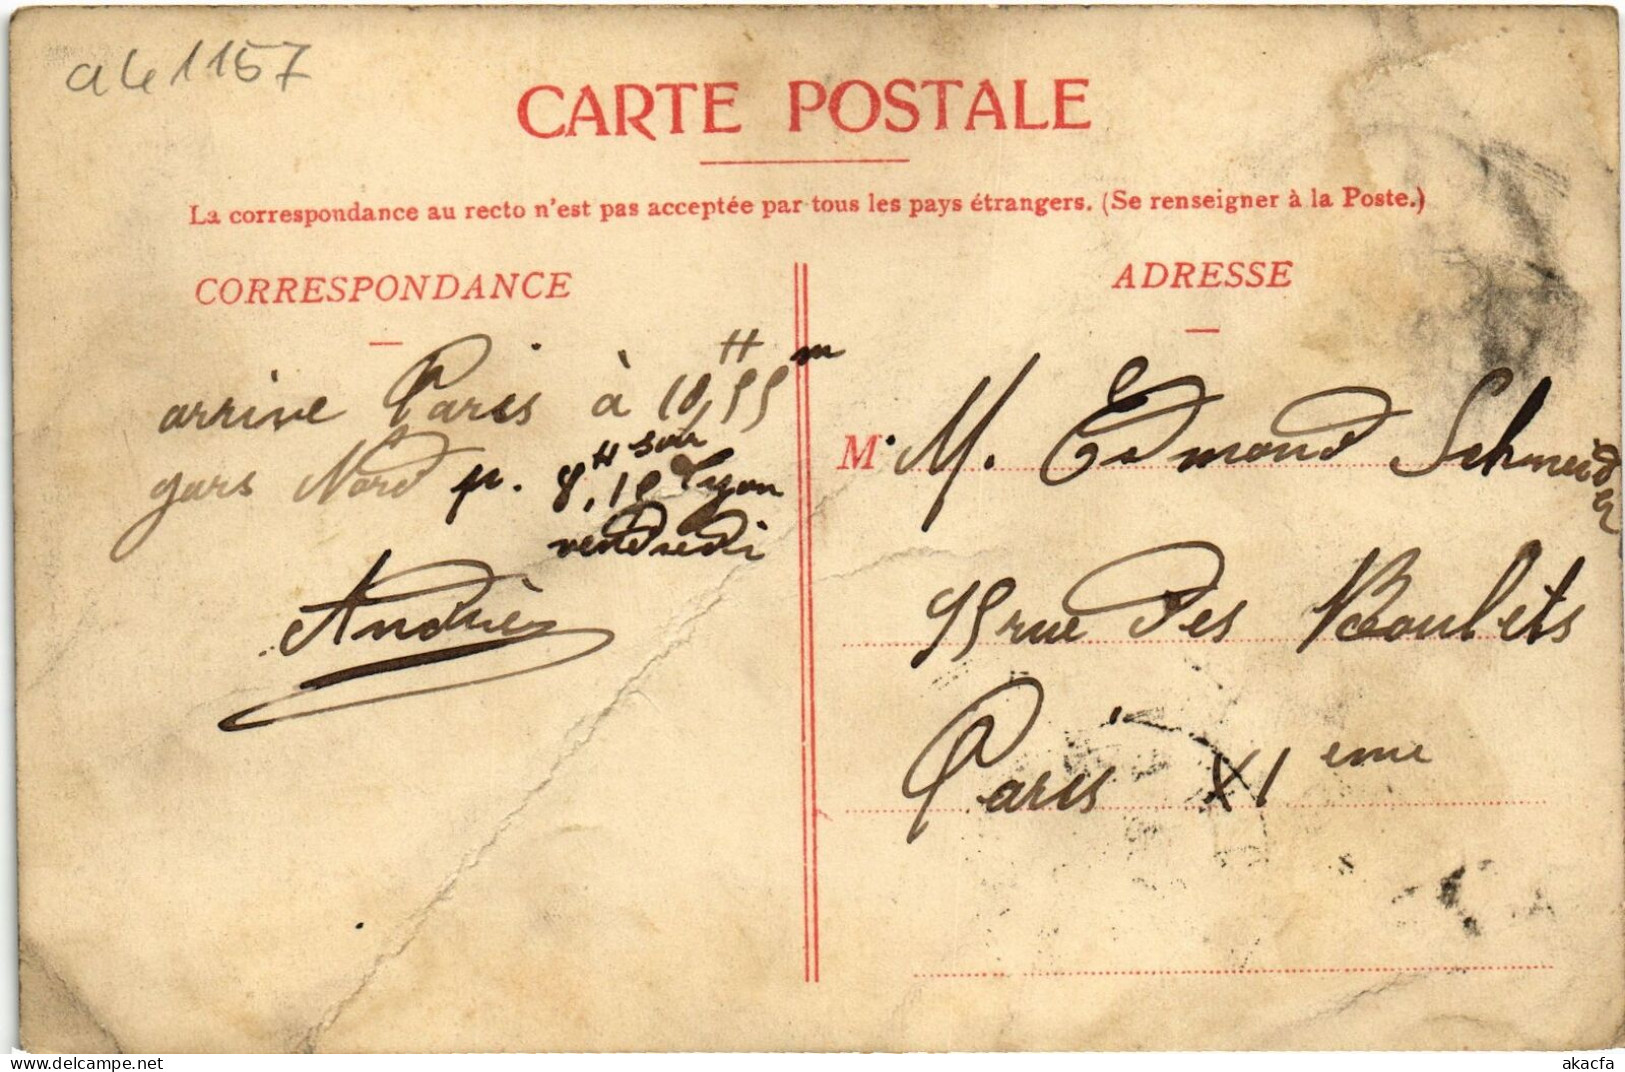 a41157
CARTE POSTALE
La correspondance au recto n'est pas acceptée par tous les pays étrangers. (Se renseigner à la Poste.)
CORRESPONDANCE
arrive Paris à 10H,55m
gare Nord p. 8H,10 soir Lyon
vendredi
André
ADRESSE
M. M. Edmond Schneider
95 rue des Boulets
Paris XIeme
www.delcampe.net
akacfa